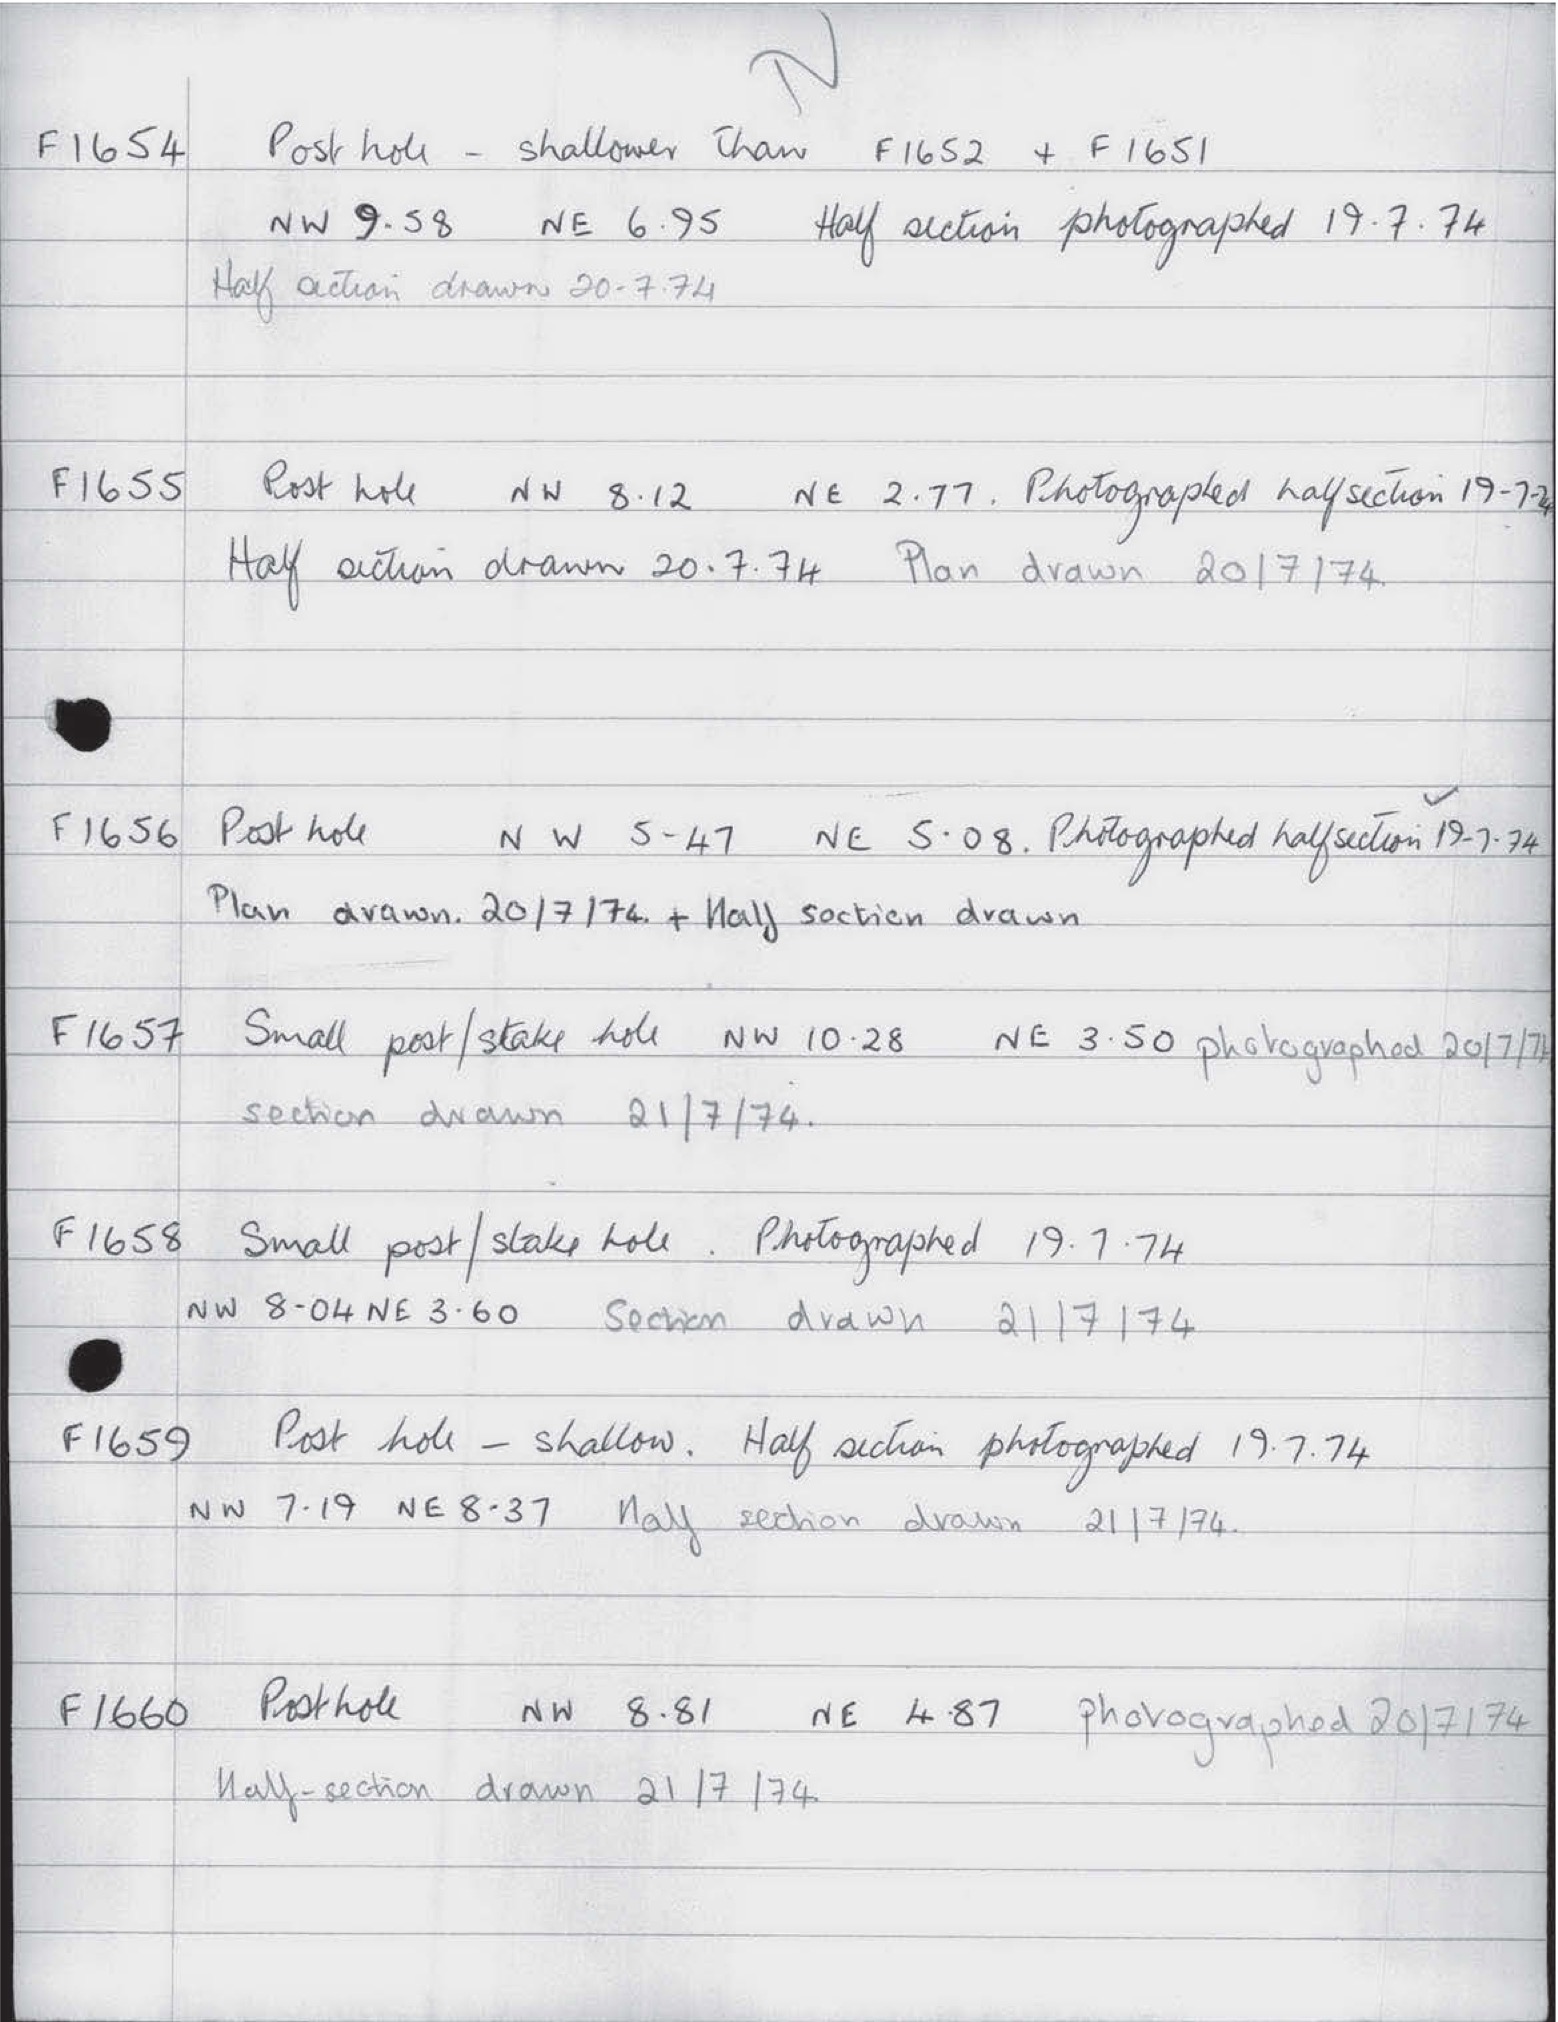 N
F1654 Post hole - shallower than F1652 + F1651
NW 9.58 NE 6.95 Half section photographed 19.7.74
Half section drawn 20-7.74
F1655 Post hole NW 8.12 NE 2.77. Photographed half section 19-7-74
Half section drawn 20.7.74 Plan drawn 20/7/74.
F1656 Post hole NW 5-47 NE 5.08. Photographed half section 19-7.74
Plan drawn. 20/7/74. + Half section drawn
F1657 Small post/stake hole NW 10.28 NE 3.50 photographed 20/7/74
section drawn 21/7/74.
F1658 Small post/stake hole. Photographed 19.7.74
NW 8-04 NE 3.60 Section drawn 21/7/74
F1659 Post hole - shallow. Half section photographed 19.7.74
NW 7.19 NE 8.37 Half section drawn 21/7/74.
F1660 Post hole NW 8.81 NE 4.87 photographed 20/7/74
Half-section drawn 21/7/74.